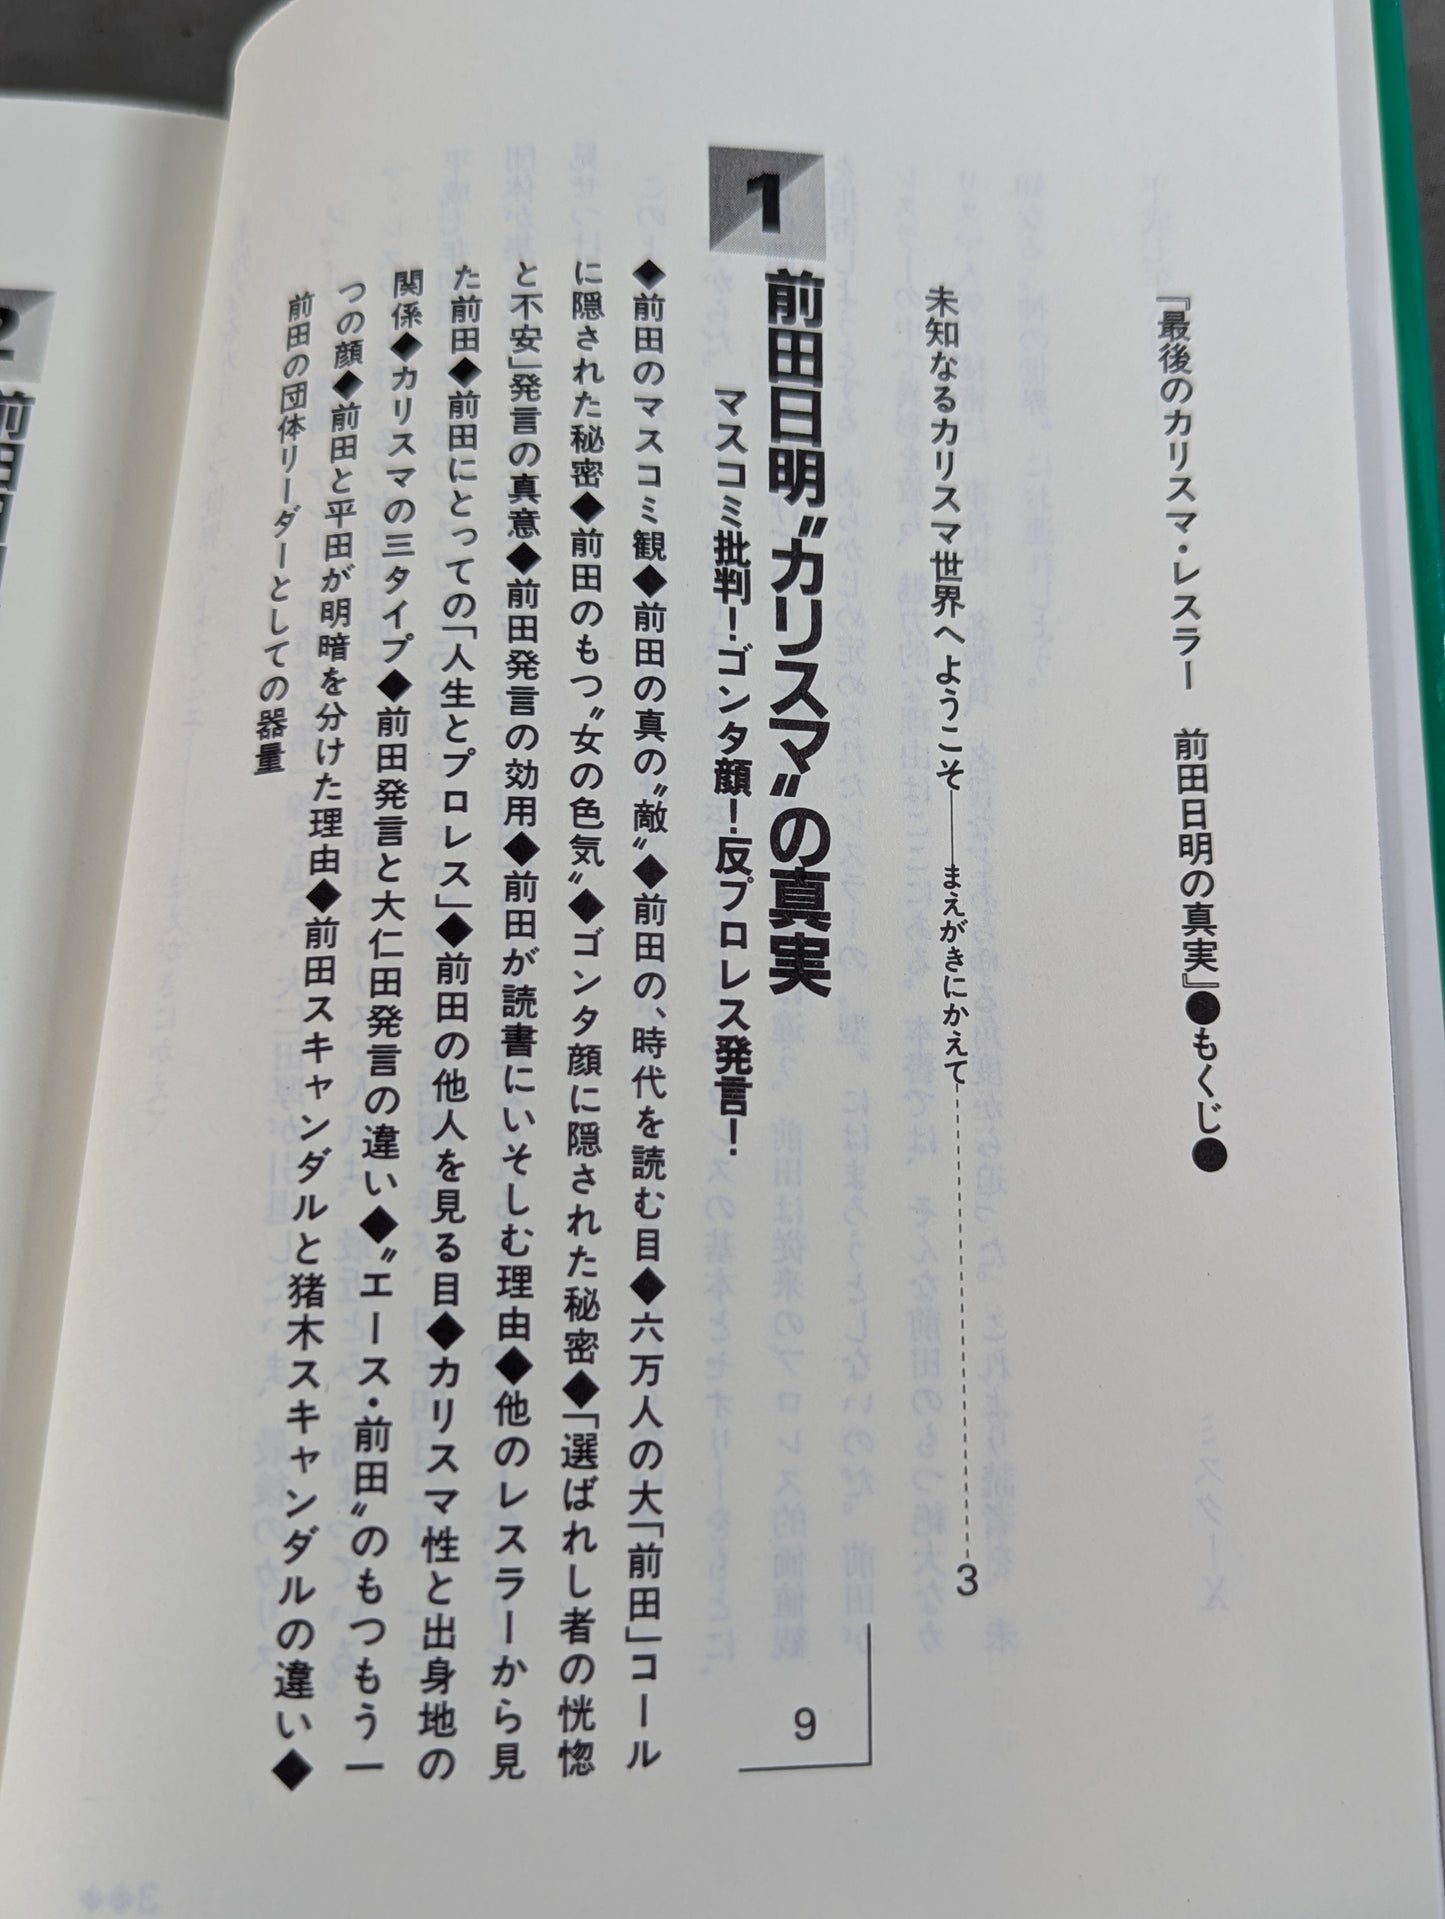 『最後のカリスマ・レスラー　前田日明の真実』●もくじ●
未知なるカリスマ世界へようこそ――まえがきにかえて 3
1
前田日明〝カリスマ〟の真実
マスコミ批判！ゴンタ顔！反プロレス発言！
9
◆前田のマスコミ観◆前田の真の〝敵〟◆前田の、時代を読む目◆六万人の大「前田」コール
に隠された秘密◆前田のもつ〝女の色気〟◆ゴンタ顔に隠された秘密◆「選ばれし者の恍惚
と不安」発言の真意◆前田発言の効用◆前田が読書にいそしむ理由◆他のレスラーから見
た前田◆前田にとっての「人生とプロレス」◆前田の他人を見る目◆カリスマ性と出身地の
関係◆カリスマの三タイプ◆前田発言と大仁田発言の違い◆〝エース・前田〟のもつもう一
つの顔◆前田と平田が明暗を分けた理由◆前田スキャンダルと猪木スキャンダルの違い◆
前田の団体リーダーとしての器量
2